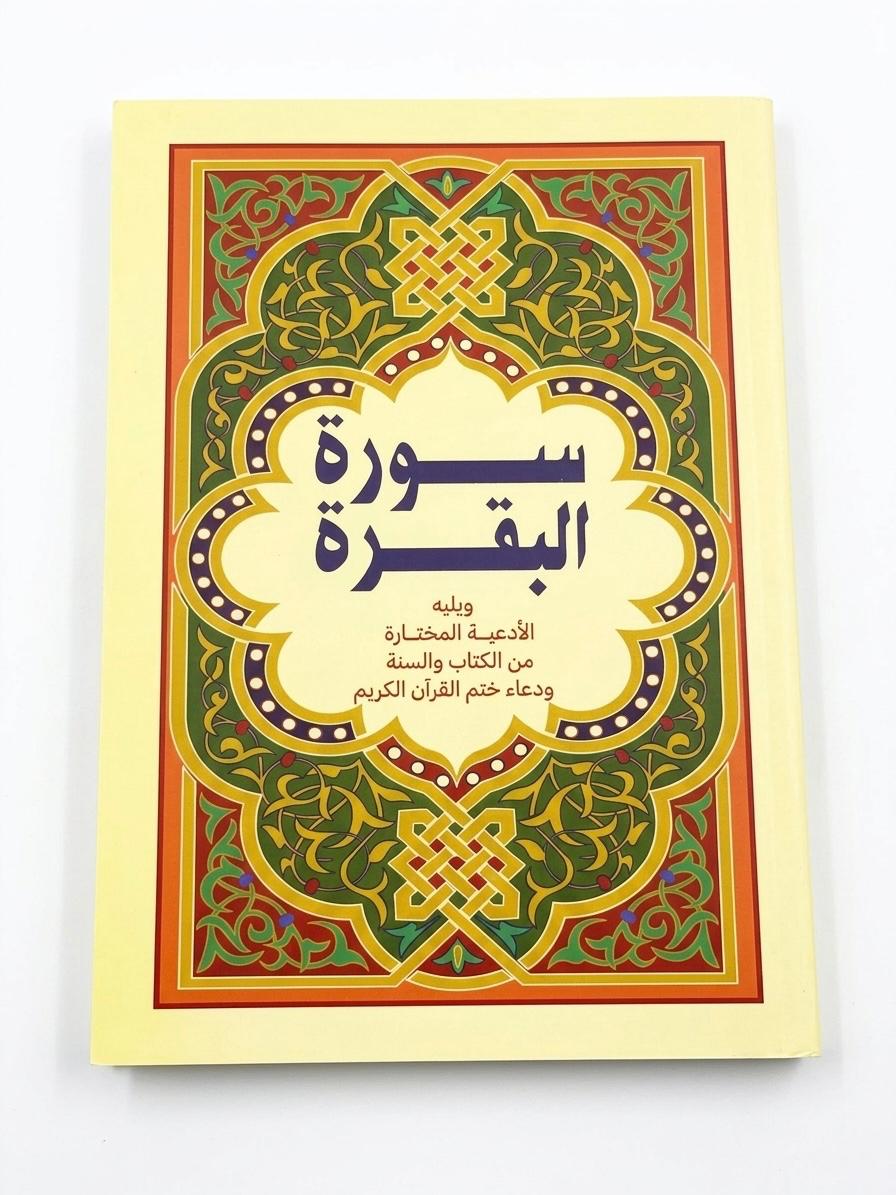 سورة
البقرة
ويليه
الأدعية المختارة
من الكتاب والسنة
ودعاء ختم القرآن الكريم